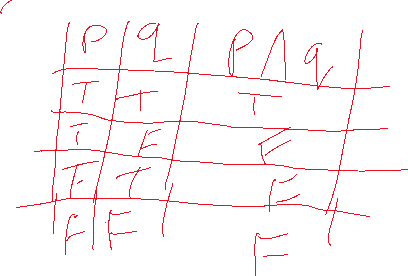 P q P∧q
T T T
T F F
F T F
F F F